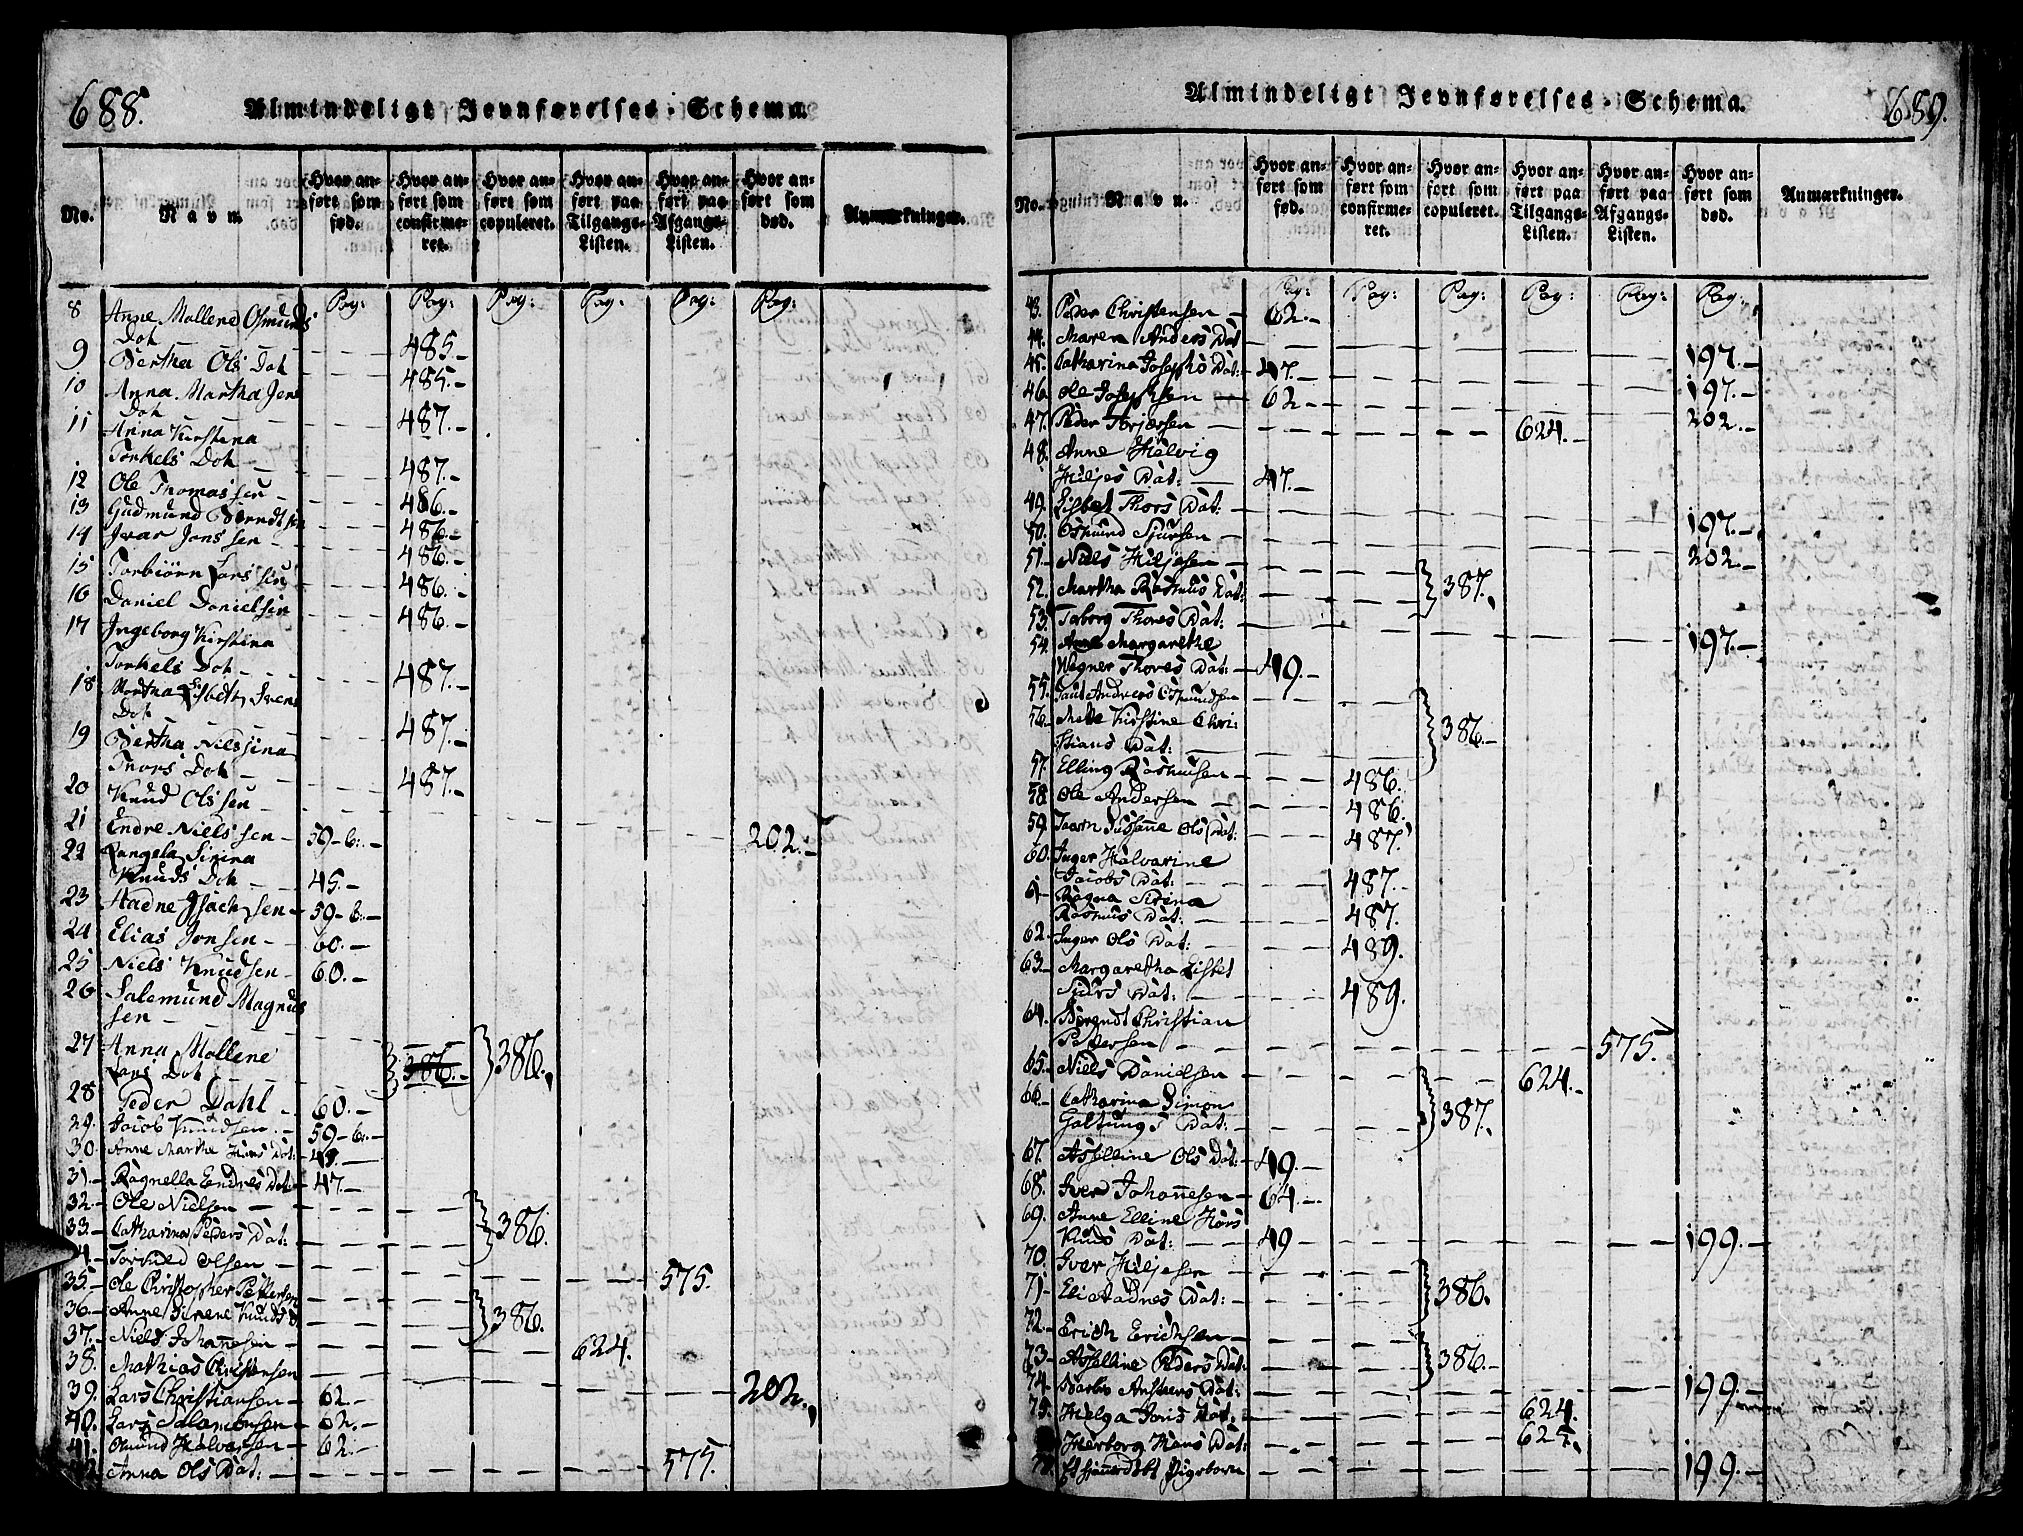 688.
Almindeligt Jevnførelses-Schema.
No.
Navn
Hvor anført som fød.
Hvor anført som confirmeret.
Hvor anført som copuleret.
Hvor anført paa Tilgangs-Listen.
Hvor anført paa Afgangs-Listen.
Hvor anført som død.
Anmærkninger.
Pag: Pag: Pag: Pag: Pag: Pag:
8 Anne Mallene Osmunds
Dot 485.
9 Bertha Ols Dot 485.
10 Anna Martha Jens
Dot 487.
11 Anna Kirstena
Torkels Dot 487.
12 Ole Thomassen 486.
13 Gudmund Berndtsen 486.
14 Ivar Jonssen 486.
15 Torbiörn Larssen 486.
16 Daniel Danielsen 486.
17 Ingeborg Kirstina
Torkels Dot 487.
18 Martha Lisbeth Svens
Dot 487.
19 Bertha Nilssina
Thors Dot 487.
20 Knud Olssen 202.
21 Endre Nielssen 59-b.
22 Rangela Sirina
Knuds Dot 45.
23 Aadne Isachsen 59-b.
24 Elias Jonsen 60.
25 Niels Knudsen 60.
26 Salemund Magnus
sen
27 Anna Mallene
Lars Dot 386. 386.
28 Peder Dahl 60.
29. Jacob Knudsen 59-b.
30. Anne Marthe Dat: 49.
31. Ragnella Endres Dat: 47.
32. Ole Nielsen
33. Catharina Peders Dat: 386.
34. Torkild Olsen 575.
35. Ole Christopher Pettersen
36. Anne Serene Knuds D 386.
37. Niels Johannesen 624.
38. Mathias Christensen 202.
39. Lars Christiansen 62.
40. Lars Salamonsen 62.
41. Omund Halvorsen 62.
42. Anna Ols Dat: 575.
Almindeligt Jevnførelses-Schema.
689.
No.
Navn.
Hvor anført som fød.
Hvor anført som confirmeret.
Hvor anført som copuleret.
Hvor anført paa Tilgangs-Listen.
Hvor anført paa Afgangs-Listen.
Hvor anført som død.
Anmærkninger.
Pag: Pag: Pag: Pag: Pag: Pag:
43. Peder Christensen 62.
44. Maren Anders Dat 197.
45. Catharina Josephs Dat: 47. 197.
46. Ole Josephsen 62. 202.
47. Peder Torjersen 624.
48. Anne Helvig
Hiljes Dat: 47.
49. Lisbet Thors Dat: 197.
50. Osmund Sjursen 202.
51. Niels Hiljesen
52. Martha Rasmus Dat: 387.
53. Taborg Thores Dat: 197.
54. Anne Margarethe
Wegner Thores Dat: 49.
55. Paul Andreas Osmundsen
56. Mette Kirstine Chri-
stians Dat: 386.
57. Elling Rasmusen 486.
58. Ole Andersen 486.
59. Susanne Ols Dat: 487.
60. Inger Halvarine
Jacobs Dat: 487.
61. Ragna Sirina
Rasmus Dat: 487.
62. Inger Ols Dat: 489.
63. Margaretha Lisbet
Siurs Dat: 489.
64. Berendt Christian
Pettersen 575.
65. Niels Danielsen 624.
66. Catharina Simon
Galtungs Dat: 387.
67. Asselline Ols Dat: 49.
68. Iver Johannesen 64.
69. Anne Elline Hors
Knuds Dat: 49 199.
70. Iver Hiljesen
71. Eli Aadnes Dat: 386.
72. Erich Erichsen
73. Asselline Peders Dat: 386.
74. Barbro Anstens Dat: 199.
75. Helga Joris Dat: 624.
Herborg Hans Dat: 624.
Pigebarn 199.